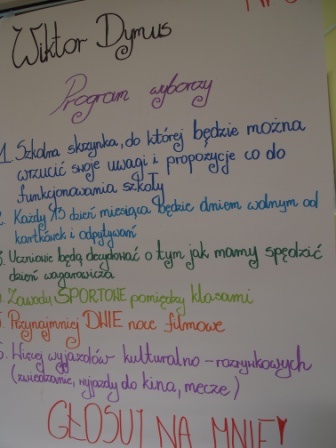 Wiktor Dymus
Program wyborzy
1. Szkolna skrzynka, do której będzie można
wrzucić swoje uwagi i propozycje co do
funkcjonowania szkoły
2. Każdy 13 dzień miesiąca będzie dniem wolnym od
kartkówek i odpytywań
3. Uczniowie będą decydować o tym jak mamy spędzić
dzień wagarowicza
4. Zawody SPORTOWE pomiędzy klasami
5. Przynajmniej DWIE noce filmowe
6. Więcej wyjazdów kulturalno-rozrywkowych
(zwiedzanie, wyjazdy do kina, mecze)
GŁOSUJ NA MNIE!